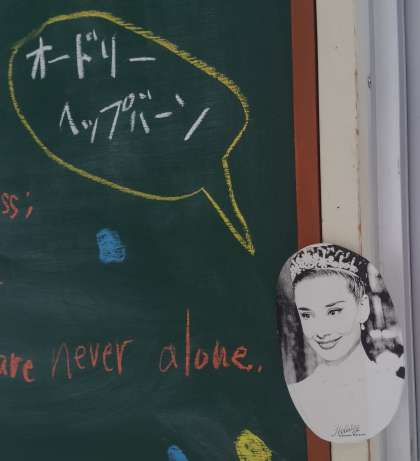 オードリー
ヘップバーン
ss;
are never alone.